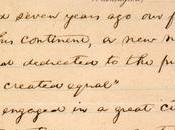 d seven years ago our f
his continent, a new n
d dedicated to the p
created equal"
engaged in a great ci